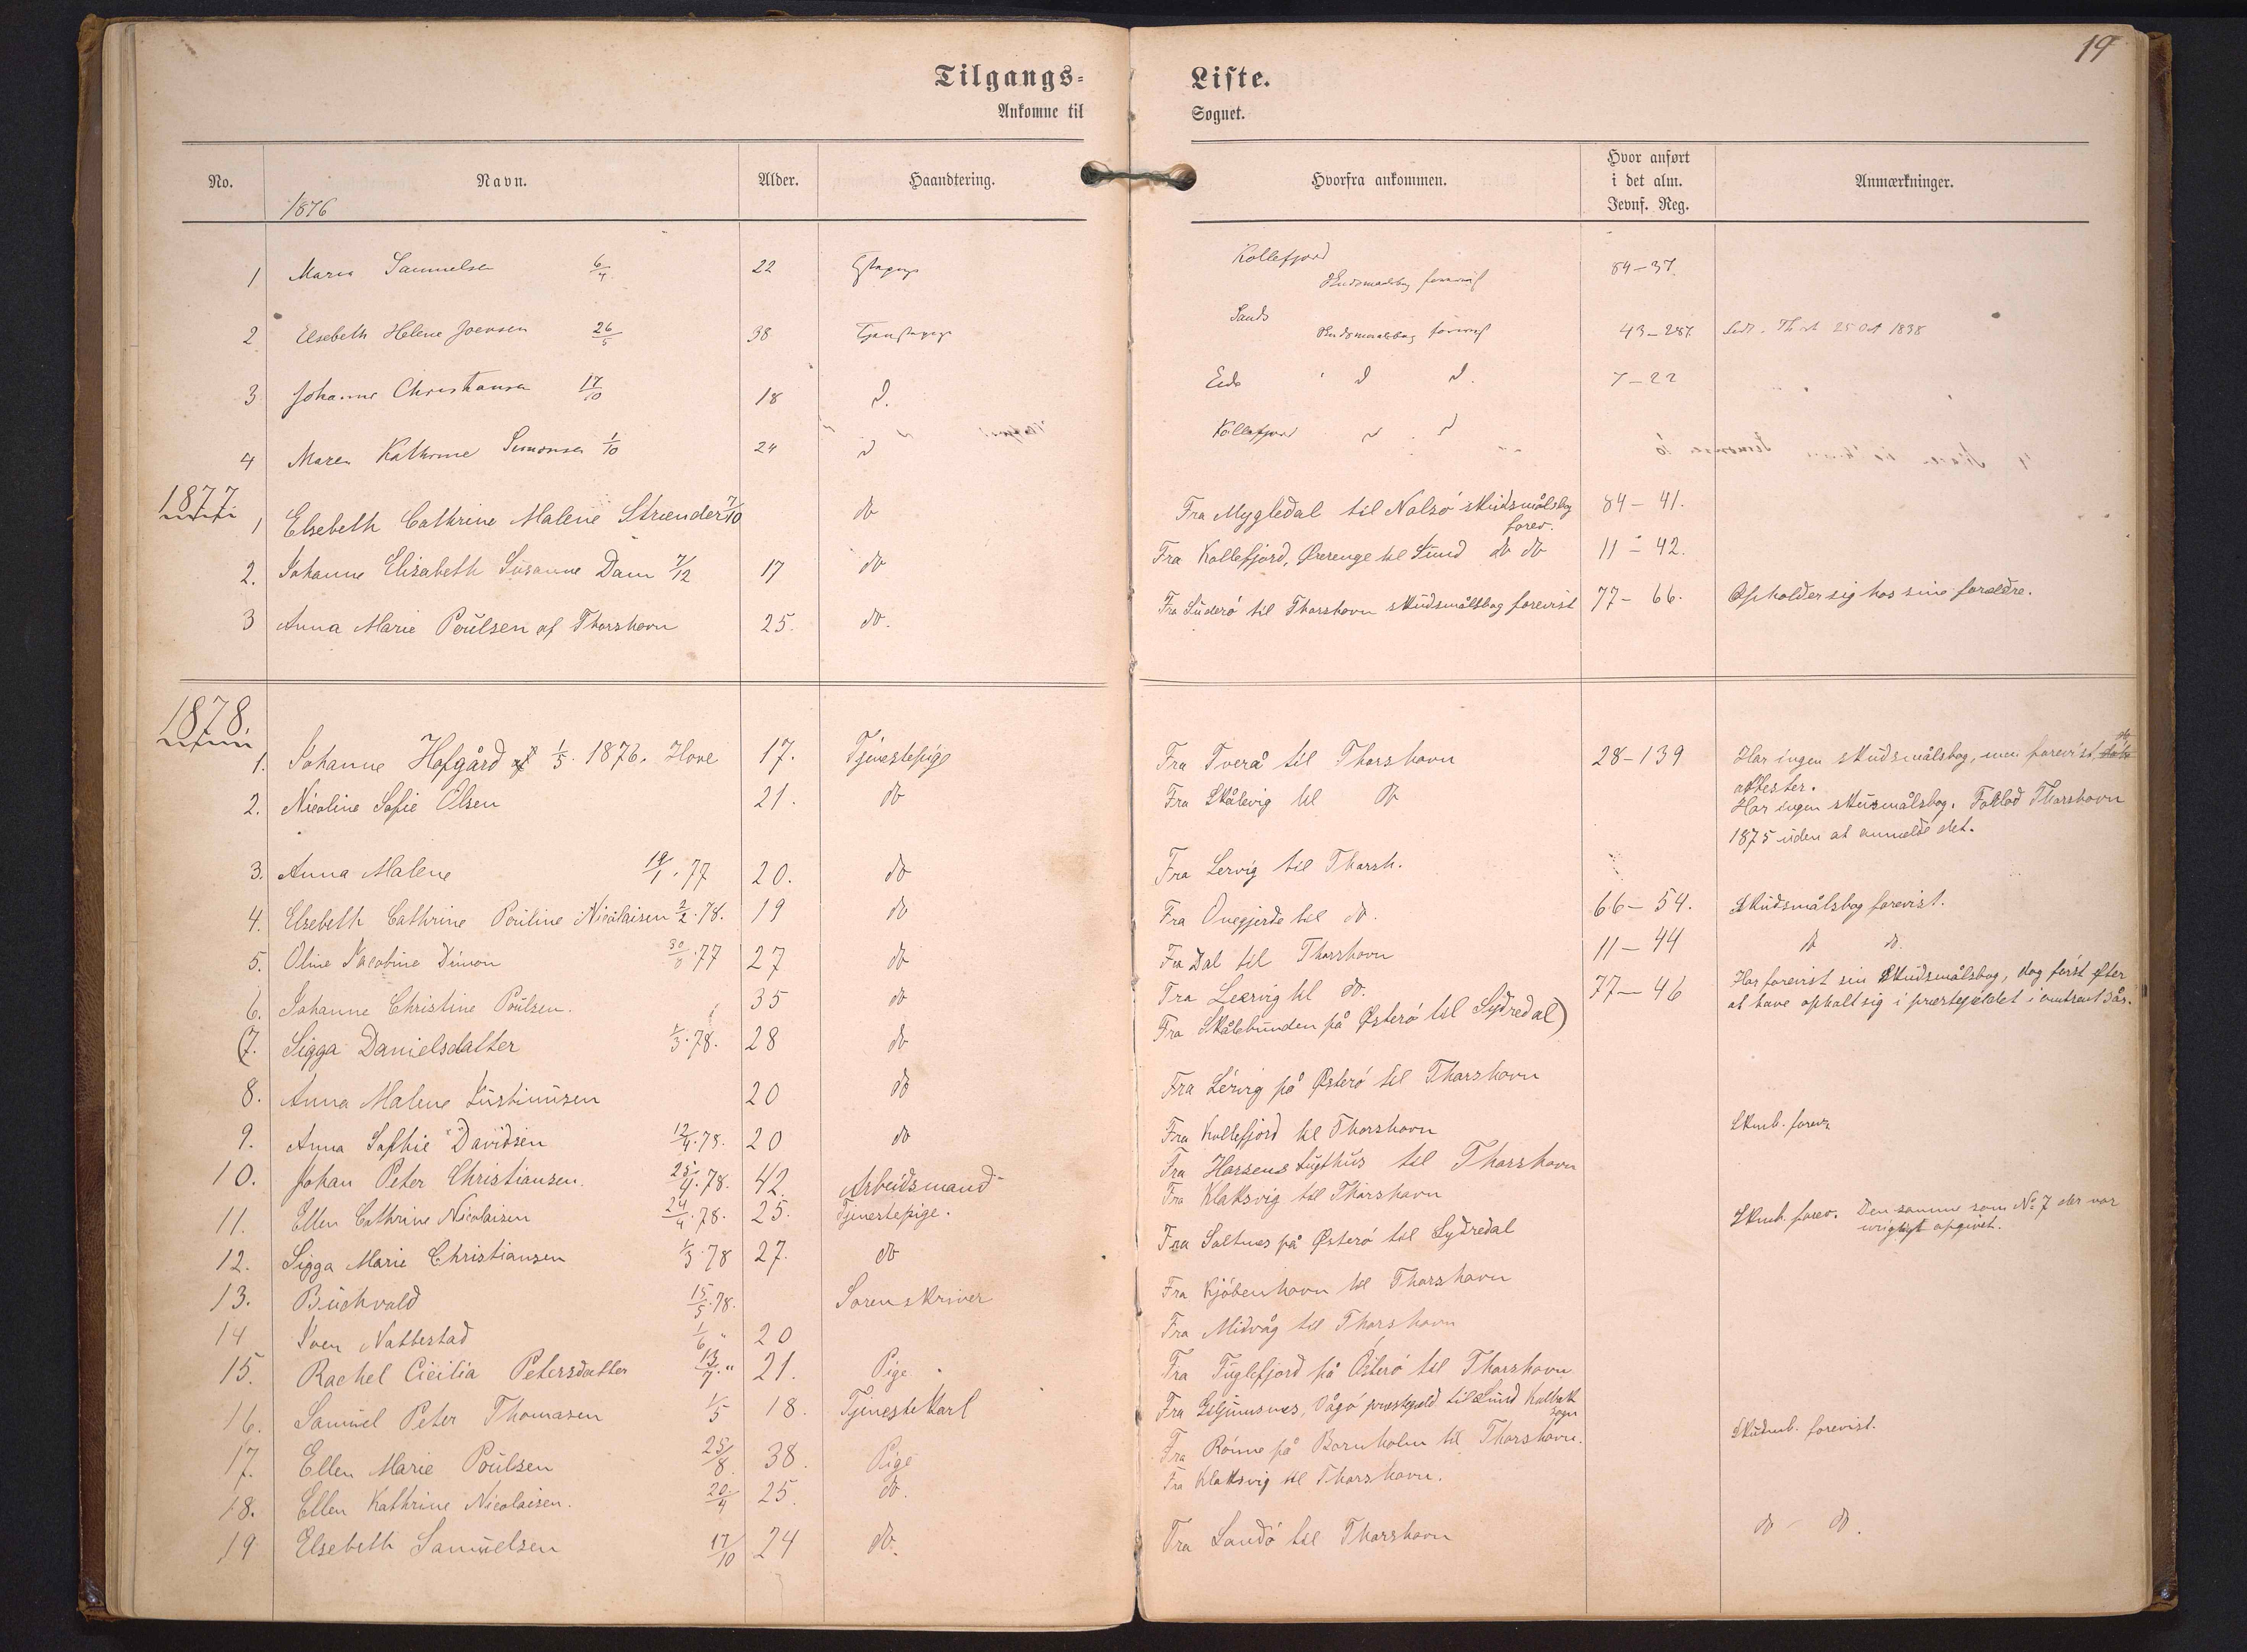 19
Tilgangs= Liste.
Ankomne til Sognet.
No. Navn. Alder. Haandtering. Hvorfra ankommen. Hvor anført i det alm. Jevnf. Reg. Anmærkninger.
1876
1 Maria Samuelsen 6/4 22 Kollefjord 84-37.
Skudsmaalsbog forevist
2 Elsebeth Helene Joensen 26/5 38 Tjenstepige Sands 43-287.
Skudsmaalsbog forevist
3 Johanne Christiansen 17/10 18 d. Eide d d. 7-22
4 Maren Kathrine Simonsen 1/10 24 d Kollefjord d d
1877
1 Elsebeth Cathrine Malene Strænder 7/10 do Fra Mygledal til Nolsö skudsmålsbog forev. 84-41.
2. Johanne Elisabeth Susanne Dam 7/12 17 do Fra Kollefjord, Örerenge til Sund do do 11-42.
3 Anna Marie Poulsen af Thorshavn 25. do. Fra Suderö til Thorshavn skudsmålsbog forevist 77-66. Opholder sig hos sine forældre.
1878.
1. Johanne Hofgård af 1/5 1876. Hove 17. Tjenestepige Fra Tverå til Thorshavn 28-139 Har ingen skudsmålsbog, men forevist
attester.
2. Nicoline Sofie Olsen 21. do Fra Skålevig til do Har ingen skusmålsbog. Forlod Thorshavn
1875 uden at anmelde det.
3. Anna Malene 19/1.77 20. do Fra Lervig til Thorsh.
4. Elsebeth Cathrine Pouline Nicolaisen 2/2.78. 19 do Fra Onegjerde til do. 66-54. Skudsmålsbog forevist.
5. Oline Jacobine Dimon 77 27 do Fra Dal til Thorshavn 11-44 do do.
6. Johanne Christine Poulsen. 35 do Fra Leervig til do. 77-46 Har forevist sin Skudsmålsbog, dog först efter
at have opholt sig i præstegældet i omtrent 3 år.
(7. Sigga Danielsdatter 1/3.78. 28 do Fra Skålebunden på Österö til Sydredal)
8. Anna Malene Justinusen 20 do Fra Lérvig på Österö til Thorshavn
9. Anna Sophie Davidsen 12/4.78. 20 do Fra Kollefjord til Thorshavn Skmb. forev.
10. Johan Peter Christiansen. 25/4.78. 42. Arbeidsmand Fra Horsens Tugthus til Thorshavn
11. Ellen Cathrine Nicolaisen 24/4.78. 25. Tjenestepige. Fra Klaksvig til Thorshavn
12. Sigga Marie Christiansen 1/3.78 27. do Fra Saltnes på Österö til Sydredal Skmb. forev. Den samme som No 7 der var
urigtigt opgivet.
13. Buchvald 15/5.78. Sorenskriver Fra Kjöbenhavn til Thorshavn
14 Sven Nattestad 1/6 " 20 Fra Midvåg til Thorshavn
15. Rachel Cicilia Petersdatter 13/7 " 21. Pige Fra Fuglefjord på Österö til Thorshavn
16. Samuel Peter Thomasen 1/5 18. Tjenestekarl Fra Giljumsnes, Vågö præstegæld til Sund Kalbak sogn
17. Ellen Marie Poulsen 25/8. 38. Pige Fra Rönne på Bornholm til Thorshavn. Skudmb. forevist.
18. Ellen Kathrine Nicolaisen. 20/4 25. do. Fra Klaksvig til Thorshavn.
19 Elsebeth Samuelsen 17/10 24 do. Fra Sandö til Thorshavn do - do.